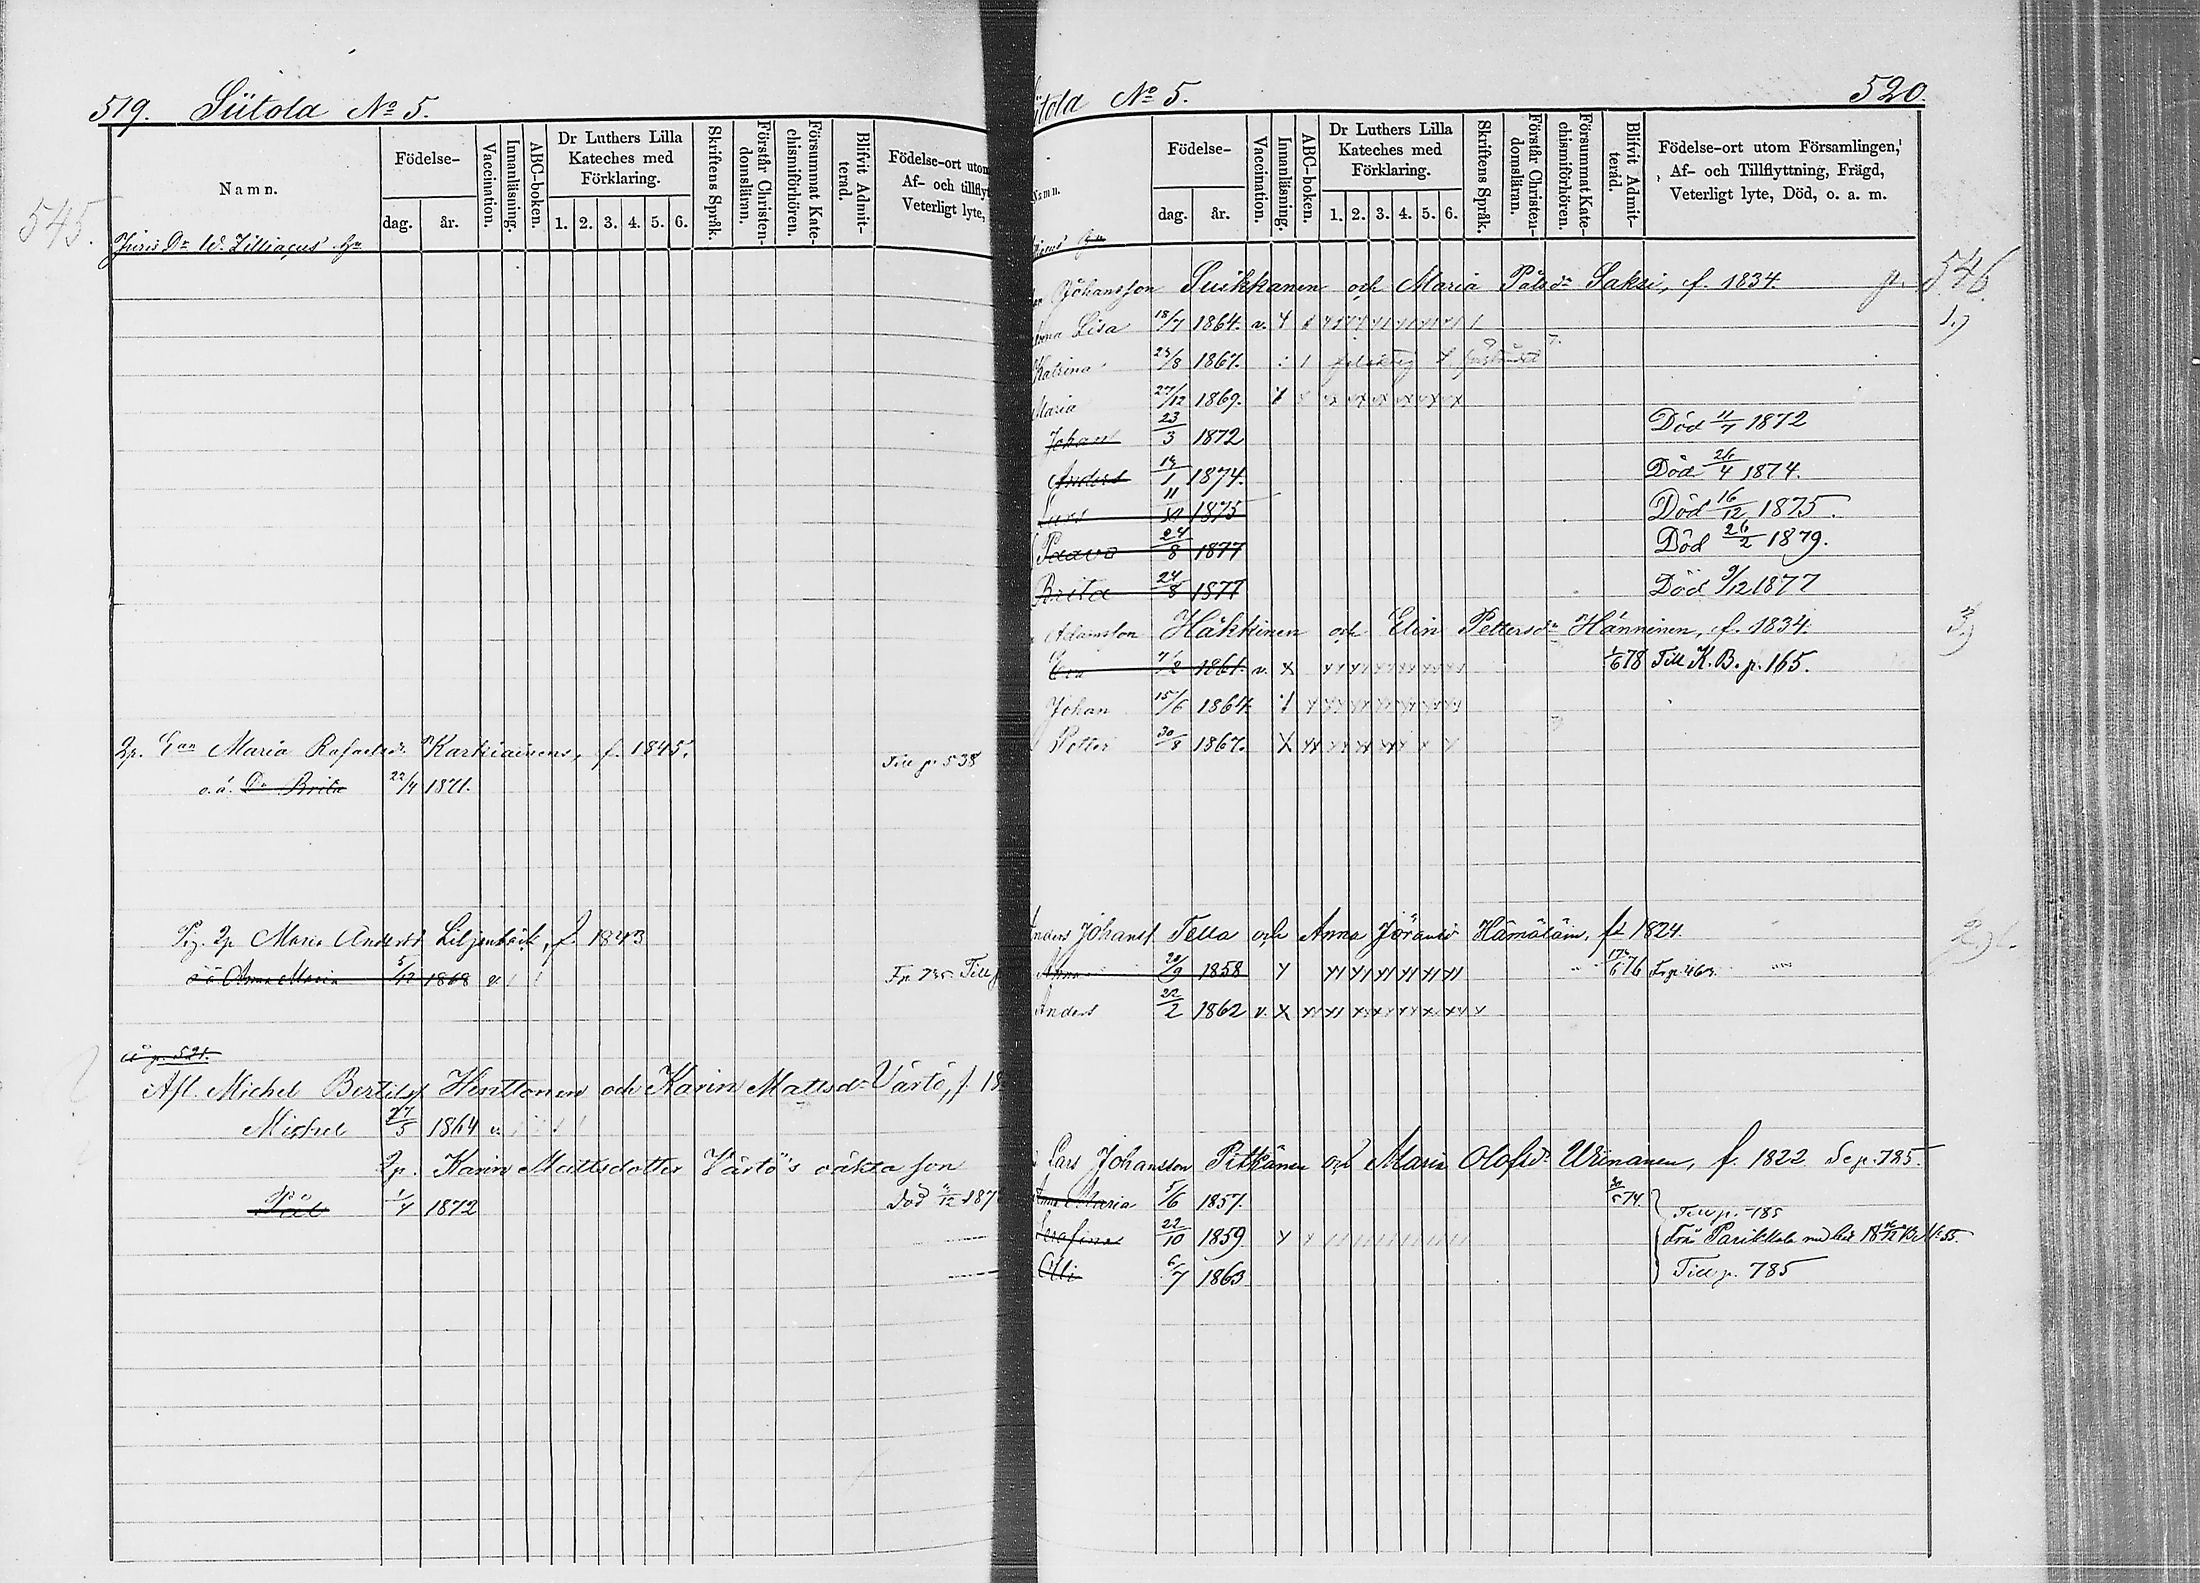 519. Siitola No 5.
545.
Namn.
Födelse-
dag. år.
Vaccination.
Innanläsning.
ABC-boken.
Dr Luthers Lilla Kateches med Förklaring.
1. 2. 3. 4. 5. 6.
Skriftens Språk.
Förstår Christen-domsläran.
Försummat Kate-chismiförhören.
Blifvit Admit-terad.
Födelse-ort utom
Af- och tillfly
Veterligt lyte,
Juris Dr W. Lilliacus' Hn
Maria Rafaelsdr Karkiainens, f. 1845.
Till p. 538
o.ä. Dr Brita 22/4 1871.
Maria Andersd Liljenbäck, f. 1843
o ä Anna Maria 5/12 1868 v.
Fr. 735 Till
p. 521.
Afl. Michel Bertilss Hinttonen och Karin Mattsdr Värtö, f. 18
Michel 27/5 1864 v.
Karin Mattsdotter Värtö's oäkta son
Pål 1/4 1872
Död
520.
itola No 5.
Namn.
Födelse-
dag. år.
Vaccination.
Innanläsning.
ABC-boken.
Dr Luthers Lilla Kateches med Förklaring.
1. 2. 3. 4. 5. 6.
Skriftens Språk.
Förstår Christen-domsläran.
Försummat Kate-chismiförhören.
Blifvit Admit-terad.
Födelse-ort utom Församlingen,
Af- och Tillflyttning, Frägd,
Veterligt lyte, Död, o. a. m.
Johansson Suikkanen och Maria Pålsdr Saksi, f. 1834. p. 546.
1.)
Anna Lisa 18/7 1864. v.
Katrina 23/8 1867.
Maria 27/12 1869.
Johan 23/3 1872 Död 11/7 1872
Anders 13/1 1874. Död 26/4 1874.
Lars 11/XI 1875 Död 16/12 1875.
Paavo 24/8 1877 Död 26/2 1879.
Brita 24/8 1877 Död 9/12 1877
Adamsson Häkkinen och Elin Pettersdr Hänninen, f. 1834. 3.)
Eva 7/2 1861. v. X 1/6 78 Till K. B. p. 165.
Johan 15/6 1864.
Petter 30/8 1867. X
Anders Johanss Tella och Anna Jöransd Hämäläin, f. 1824. 2.)
Anna 20/9 1858
Anders 22/2 1862 v. X
Lars Johansson Pitkänen och Maria Olofsd. Urinanen, f. 1822 Se p. 785.
Anna Maria 5/6 1857. Till p. 785
Serafina 22/10 1859 Från Parikkala
Olli 6/7 1863 Till p. 785